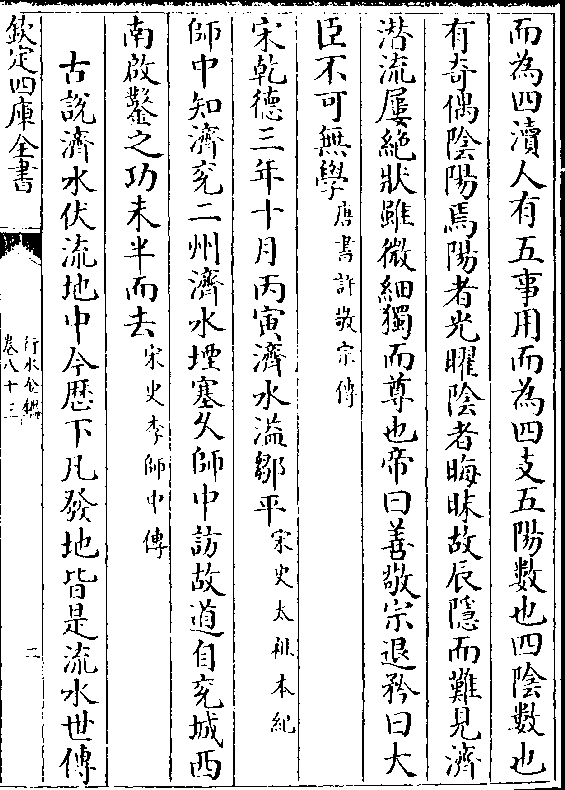 而為四瀆人有五事用而為四支五陽數也四陰數也
有奇偶陰陽焉陽者光曜陰者晦昧故辰隱而難見濟
潜流屢絶狀雖微細獨而尊也帝曰善敬宗退矜曰大
臣不可無學唐書許敬宗傳
宋乾德三年十月丙寅濟水溢鄒平宋史太祖本紀
師中知濟兖二州濟水堙塞久師中訪故道自兖城西
南啟鑿之功未半而去宋史李師中傳
古說濟水伏流地中今歴下凡發地皆是流水世傳
欽定四庫全書
行水金鑑
卷八十三
二